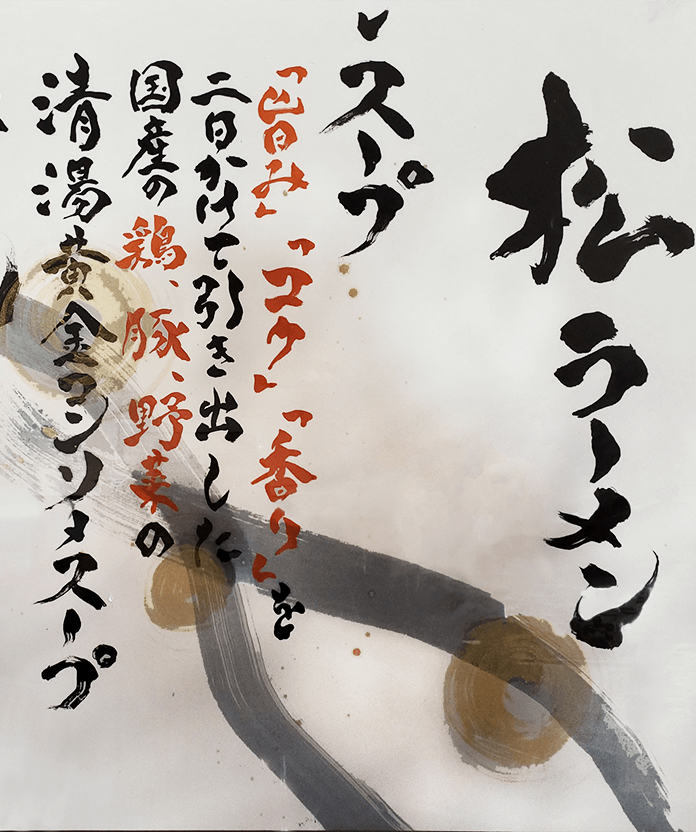 松 ラーメン
スープ
「旨み」「コク」「香り」を
二日かけて引き出した
国産の鶏、豚、野菜の
清湯黄金コンソメスープ